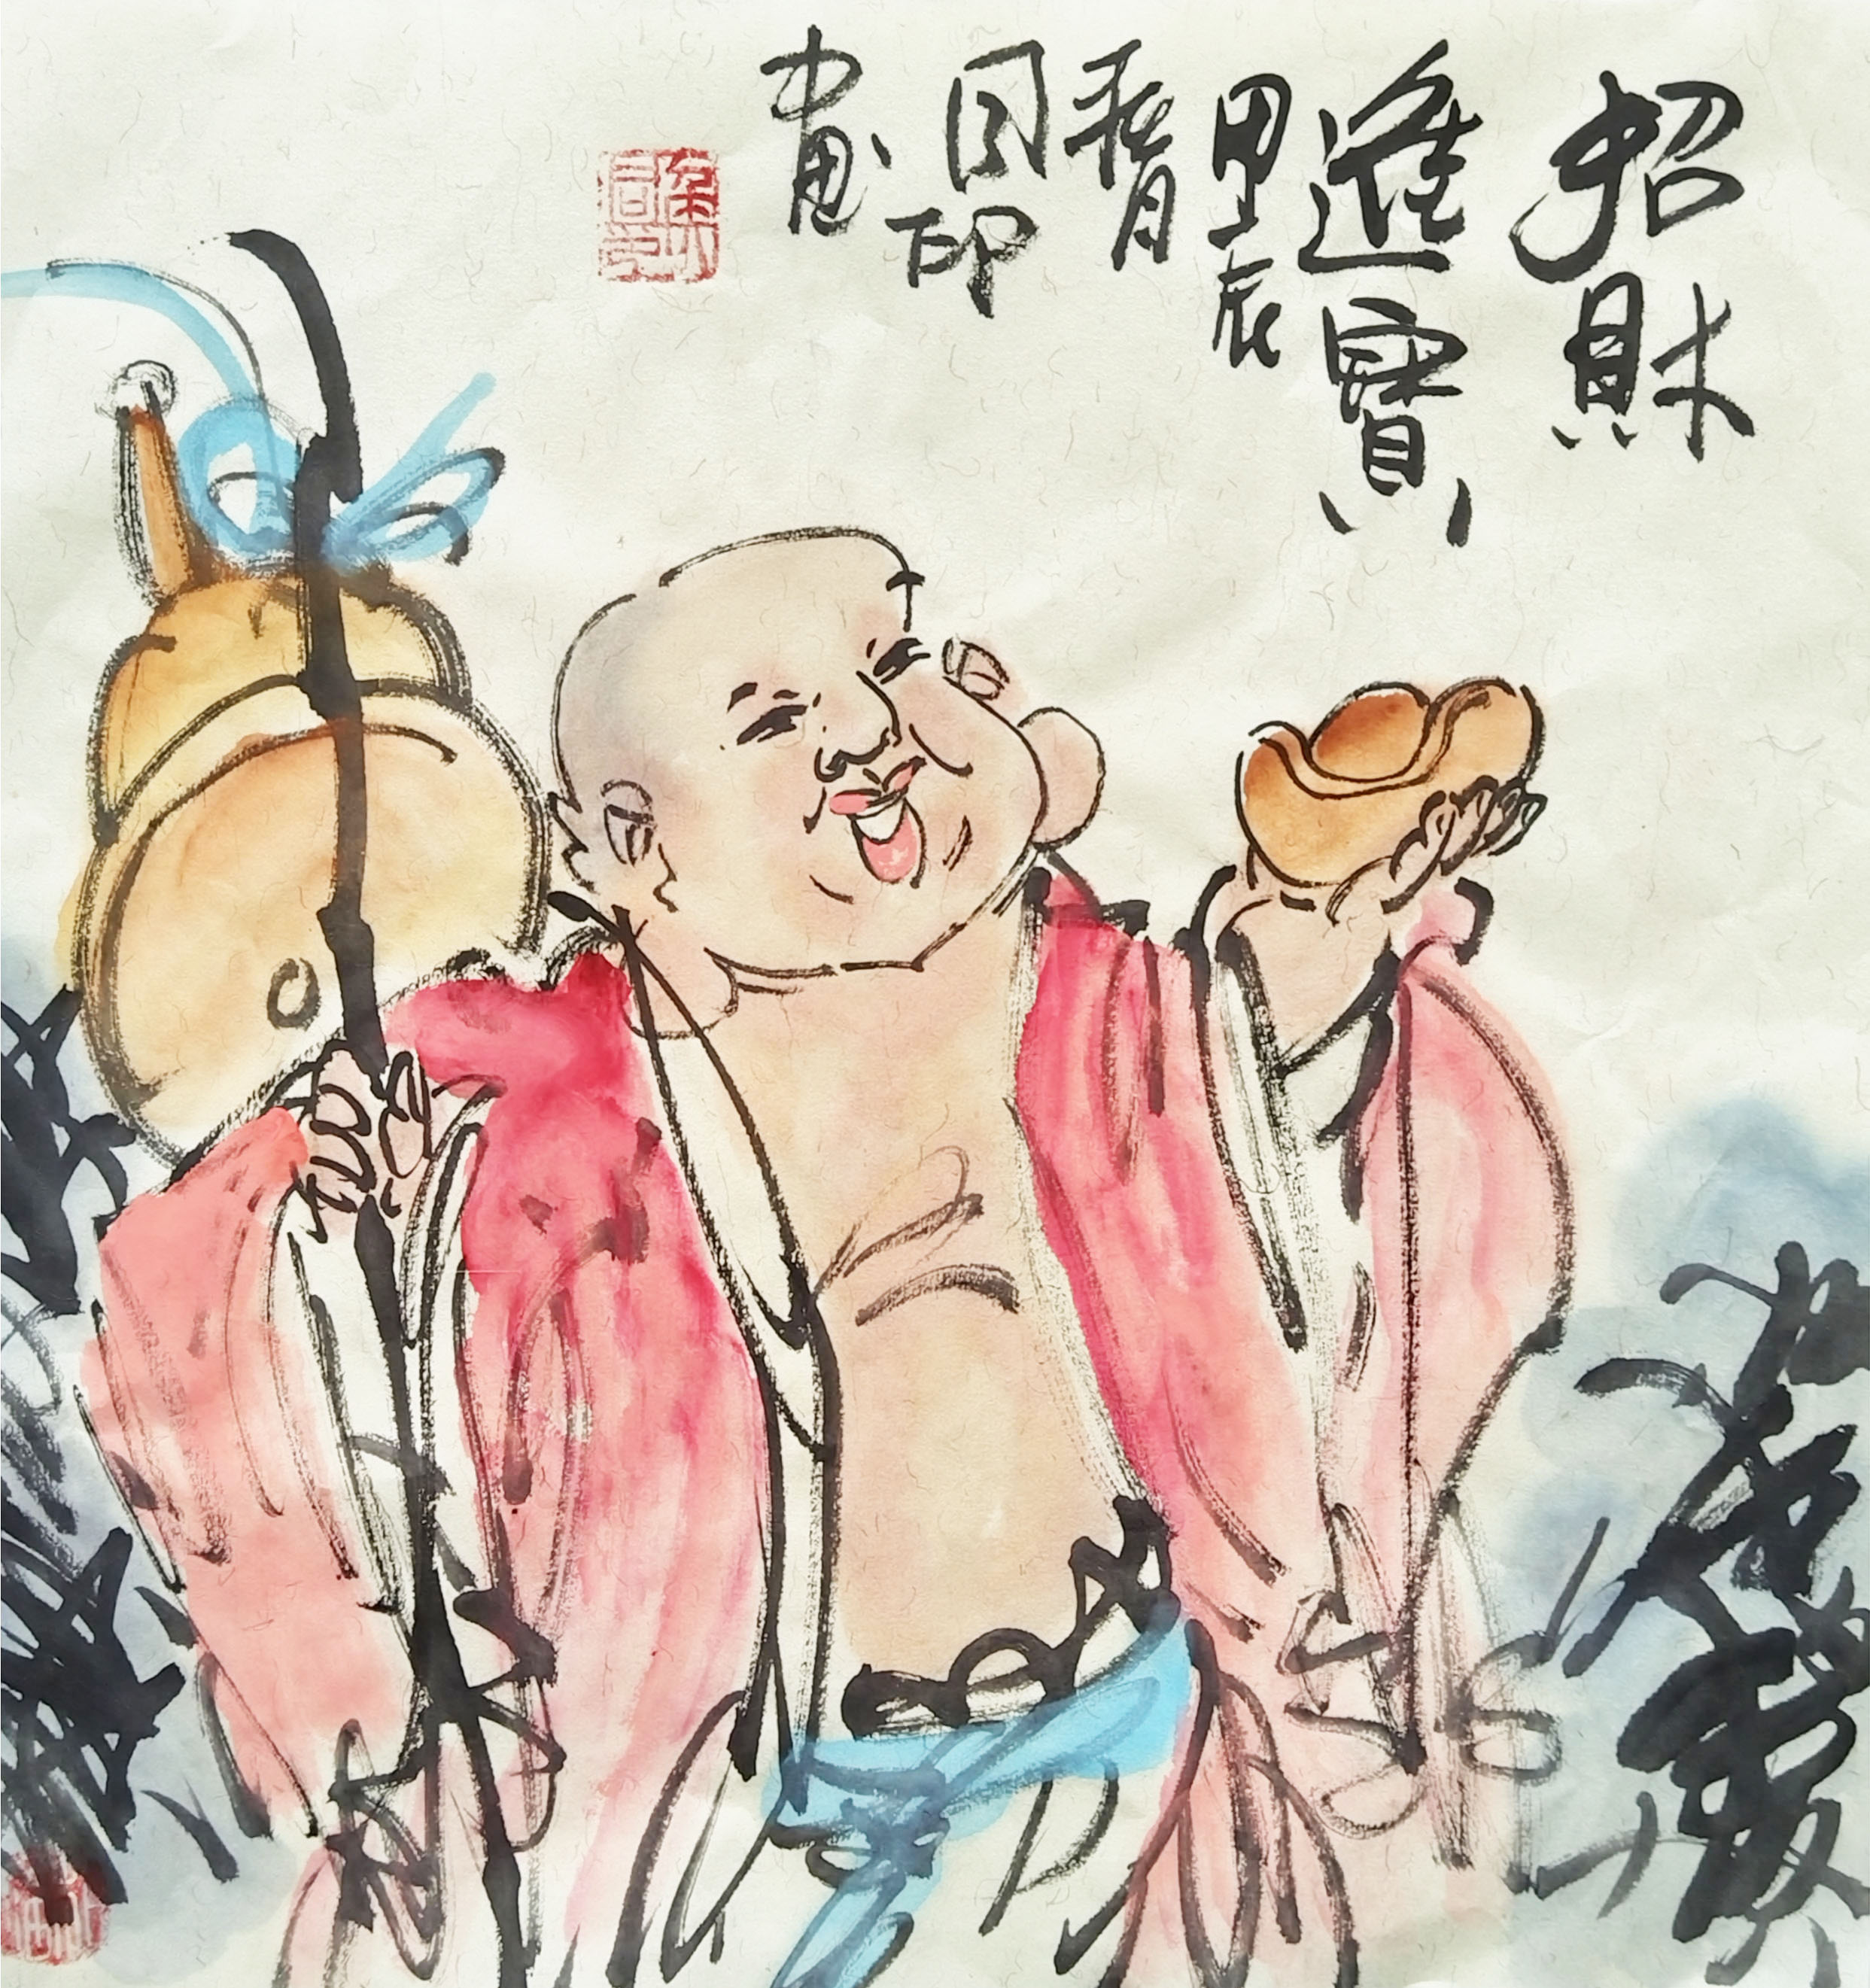 招財
進寶
甲辰
春月
同印
畫